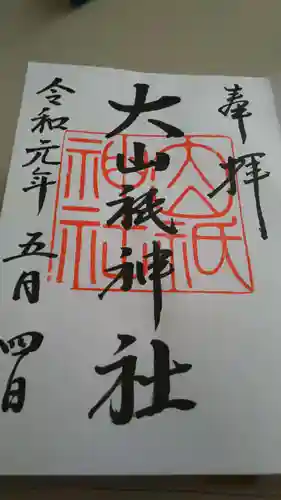 奉拝
大山祇神社
令和元年五月四日
大山祇
神社